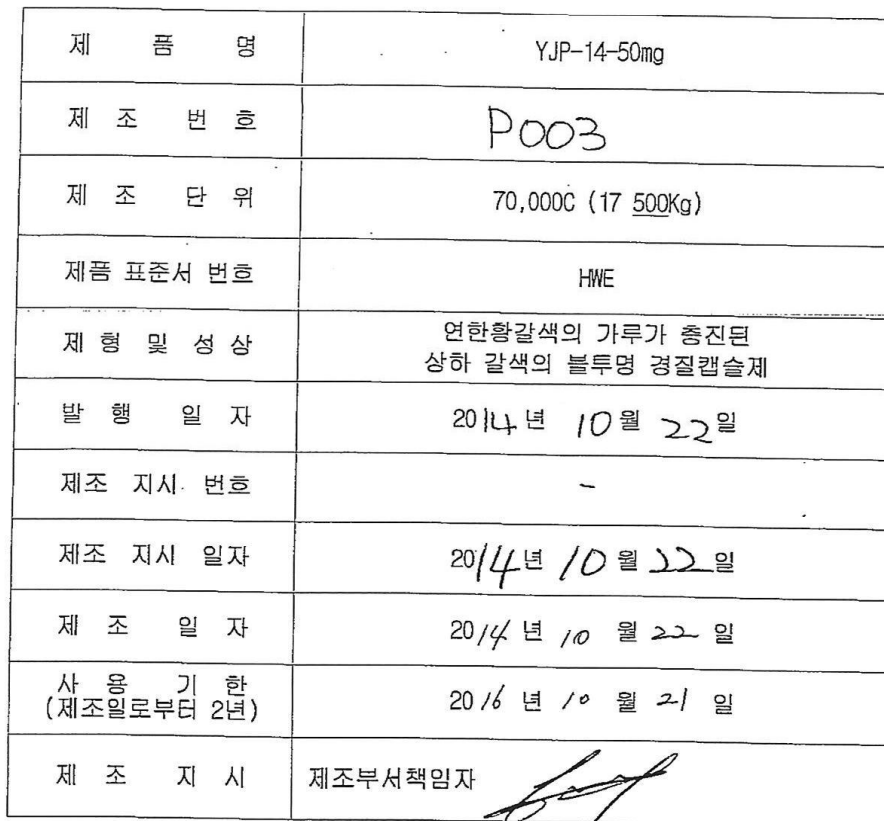 제 품 명 YJP-14-50mg
제 조 번 호 P003
제 조 단 위 70,000C (17 500Kg)
제품 표준서 번호 HWE
제 형 및 성 상 연한황갈색의 가루가 충진된
상하 갈색의 불투명 경질캡슐제
발 행 일 자 2014년 10월 22일
제조 지시 번호 -
제조 지시 일자 2014년 10월 22일
제 조 일 자 2014년 10월 22일
사 용 기 한 2016년 10월 21일
(제조일로부터 2년)
제 조 지 시 제조부서책임자